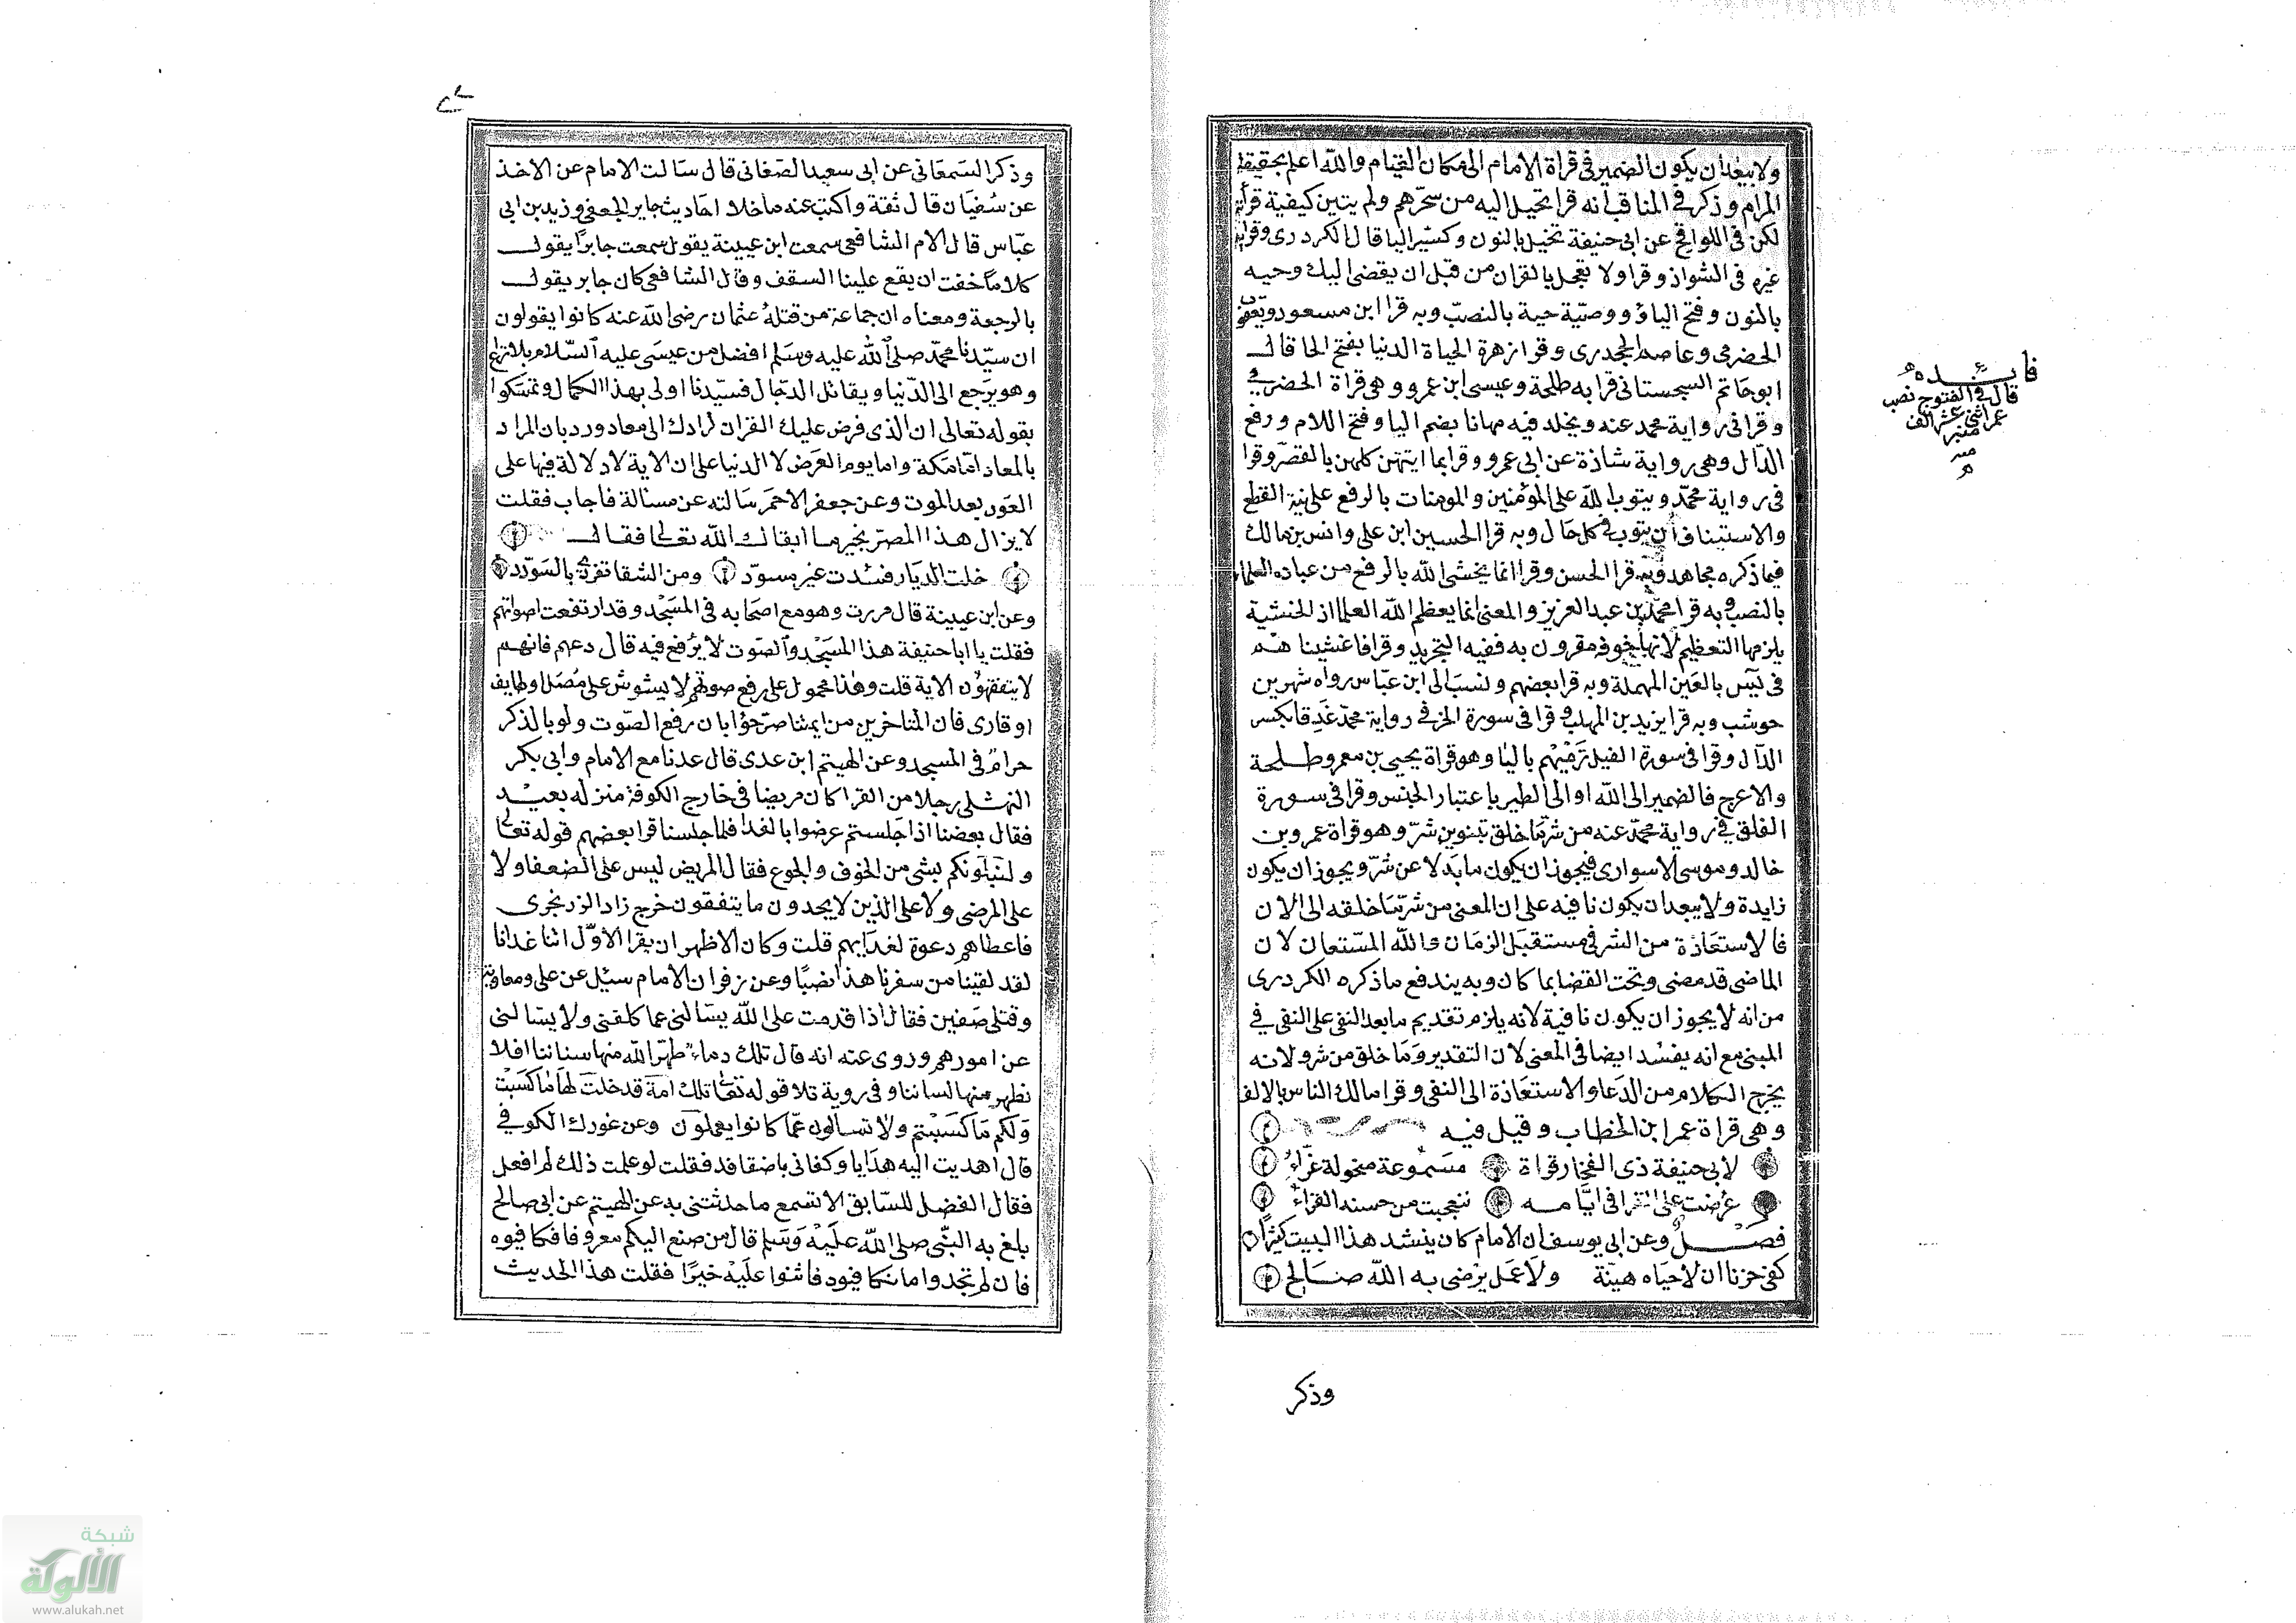 ولا يبعد ان يكون الضمير في قراة الامام الى مكان القيام والله اعلم بحقيقة
المرام وذكر في المناقب انه قرا تخيل اليه من سحرهم ولم يتبين كيفية قرأته
لكن في اللواقح عن ابي حنيفة تخيل بالنون وكسر اليا قال الكردرى وقراته
غيره في الشواذ وقرا ولا يعجل بالقران من قبل ان يقضى اليك وحيه
بالنون وفتح الياؤ ووصيّة حية بالنصب وبه قرا ابن مسعود ويعقوب
الحضرمى وعاصم الجحدرى وقرا زهرة الحياة الدنيا بفتح الها قال
ابو حاتم السجستانى قرا به طلحة وعيسى ابن عمرو وهى قراة الحضرمي
وقرا فى رواية محمد عنه ويخلد فيه مهانا بضم اليا وفتح اللام ورفع
الدال وهى رواية شاذة عن ابى عمرو وقرا بما ايتهن كلهن بالقصر وقرا
فى رواية محمد ويتوب الله على المؤمنين والمومنات بالرفع على نية القطع
والاستيناف أن يتوب في كل حال وبه قرا الحسين ابن على وانس بن مالك
فيما ذكره مجاهد وبه قرا الحسن وقرا انما يخشى الله بالرفع من عباده العلماء
بالنصب وبه قرا محمد بن عبد العزيز والمعنى انما يعظم الله العلما اذ الخشية
يلزمها التعظيم لانها خوف مقرون به ففيه التجريد وقرا فاغشينا هم
فى يس بالعين المهملة وبه قرا بعضهم ونسب الى ابن عباس رواه شهر بن
حوشب وبه قرا يزيد بن المهلب وقرا فى سورة الجن في رواية محمد غدقا بكسر
الدال وقرا فى سورة الفيل ترميهم باليا وهو قراة يحيى بن معمر وطلحة
والاعرج فالضمير الى الله او الى الطير باعتبار الجنس وقرا فى سورة
الفلق في رواية محمد عنه من شر ما خلق بتنوين شر وهو قراة عمرو بن
خالد وموسى الاسوارى فيجوز ان يكون ما بدلا عن شر ويجوز ان يكون
زايدة ولا يبعد ان يكون نافيه على ان المعنى من شر ما خلقه الى الان
فالاستعاذة من الشر فى مستقبل الزمان والله المستعان لان
الماضى قد مضى وتحت القضا بما كان وبه يندفع ما ذكره الكردرى
من انه لا يجوز ان يكون نافية لانه يلزم تقديم ما بعد النفى على النفى في
المبنى مع انه يفسد ايضا فى المعنى لان التقدير وما خلق من شر ولانه
يخرج الكلام من الدعا والاستعاذة الى النفى وقرا مالك الناس بالالف
وهى قراة عمر ابن الخطاب وقيل فيه
لابى حنيفة ذى الفخار قراة مسموعة منخولة غراء
عرضت على القرا فى ايامه فتعجبت من حسنه القراء
فصل وعن ابى يوسف ان الامام كان ينشد هذا البيت كثيرا
كفى حزنا ان لا حياه هينة ولا عمل يرضى به الله صالح
وذكر
فائده
قال في الفتوح نصب
عمر اثنى عشر الف
منبر
وذكر السمعانى عن ابى سعيد الصغانى قال سالت الامام عن الاخذ
عن سفيان قال ثقة واكتب عنه ما خلا احاديث جابر الجعفى وزيد بن ابى
عباس قال الام الشافعى سمعت ابن عيينة يقول سمعت جابرا يقول
كلاما خفت ان يقع علينا السقف وقال الشافعى كان جابر يقول
بالرجعة ومعناه ان جماعة من قتلة عثمان رضى الله عنه كانوا يقولون
ان سيّدنا محمد صلى الله عليه وسلم افضل من عيسى عليه السلام بلا نزاع
وهو يرجع الى الدنيا ويقاتل الدجال فسيدنا اولى بهذا الكمال وتمسكوا
بقوله تعالى ان الذى فرض عليك القران لرادك الى معاد ورد بان المراد
بالمعاد اما مكة واما يوم العرض لا الدنيا على ان الاية لا دلالة فيها على
العود بعد الموت وعن جعفر الاحمر سالته عن مسئالة فاجاب فقلت
لا يزال هذا المصر بخير ما ابقاك الله تعالى فقال
خلت الديار فسدت غير مسود ومن الشقا تفردى بالسودد
وعن ابن عيينة قال مررت وهو مع اصحابه فى المسجد وقد ارتفعت اصواتهم
فقلت يا ابا حنيفة هذا المسجد والصوت لا يرفع فيه قال دعهم فانهم
لا يتفقهون الاية قلت وهذا محمول على رفع صوتهم لا يشوش على مصل او طايف
او قارى فان المتاخرين من ايمتنا صرحوا بان رفع الصوت ولو بالذكر
حرام فى المسجد وعن الهيتم ابن عدى قال عدنا مع الامام وابى بكر
النهشلى رجلا من القرا كان مريضا فى خارج الكوفة منزله بعيد
فقال بعضنا اذا جلستم عرضوا بالغدا فلما جلسنا قرا بعضهم قوله تعالى
ولنبلونكم بشى من الخوف والجوع فقال المريض ليس على الضعفا ولا
على المرضى ولا على الذين لا يجدون ما يتفقون خرج زاد الزرنجرى
فاعطاهم دعوة لغدايهم قلت وكان الاظهر ان يقرا الاول اتنا غدانا
لقد لقينا من سفرنا هذا نصبا وعن زفر ان الامام سئيل عن على ومعاوية
وقتلى صفين فقال اذا قدمت على الله يسالنى عما كلفنى ولا يسالنى
عن امورهم وروى عنه انه قال تلك دماء طهر الله منها سناننا افلا
نطهر منها لساننا وفى روية تلا قوله تعالى تلك امة قد خلت لها ما كسبت
ولكم ما كسبتم ولا تسالون عما كانوا يعملون وعن غورك الكوفي
قال اهديت اليه هدايا وكفانى باضعافه فقلت لو علمت ذلك لم افعل
فقال الفضل للسابق الا تسمع ما حدثتنى به عن الهيتم عن ابى صالح
بلغ به النبى صلى الله عليه وسلم قال من صنع اليكم معروفا فكافيوه
فان لم تجدوا ما تكافيوه فاثنوا عليه خيرا فقلت هذا الحديث
شبكة
الألوكة
www.alukah.net